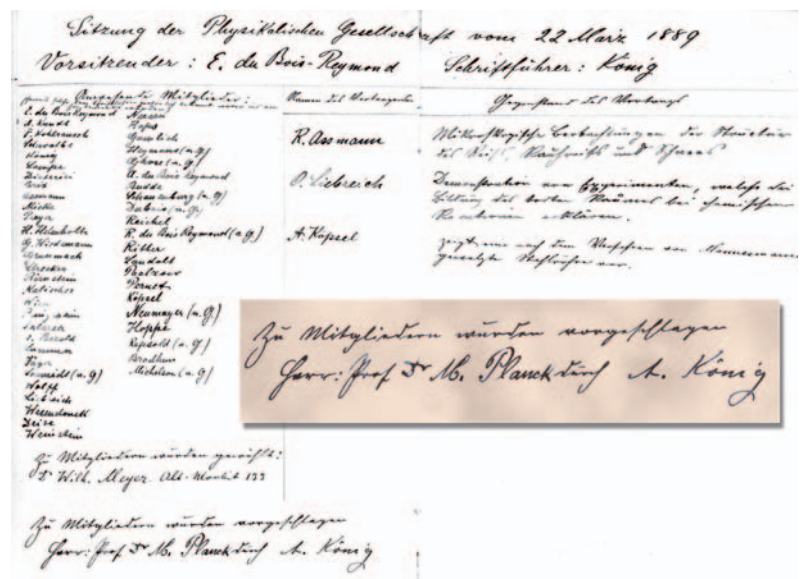 Sitzung der Physikalischen Gesellschaft vom 22 März 1889
Vorsitzender : E. du Bois-Reymond Schriftführer : König
Anwesende Mitglieder :
E. du Bois Reymond
A. Kundt
F. Kohlrausch
Schwalbe
König
Lampe
Dieterici
Assmann
H. Helmholtz
G. Wiedemann
Grunmach
Börnstein
Kalischer
Wien
v. Bezold
Lummer
Schmidt (a. G)
Wolff
Liebreich
Wesendonck
Weinstein
Gumlich
Heymans (a. G)
A. du Bois Reymond
Budde
Schauenburg (a. G)
Reichel
R. du Bois Reymond (a. G)
Ritter
Landolt
Paalzow
Pernet
Köpsel
Neumayer (a. G.)
Hoppe
Repsold (a. G)
Brodhun
Michelson (a. G)
Namen des Vortragenden
R. Assmann
O. Liebreich
A. Köpsel
Gegenstand des Vortrags
Mikroskopische Beobachtungen der Structur
des Reifs, Rauhreifs und Schnees
Demonstration von Experimenten, welche die
Bildung des todten Raumes bei chemischen
Reactionen erklären.
zeigt, nach dem Verfahren von Mannesmann
gewalzte Stahlrohre vor.
Zu Mitgliedern wurden vorgeschlagen
Herr: Prof Dr M. Planck durch A. König
Zu Mitgliedern wurden gewählt :
Dr Wilh. Meyer. Alt-Moabit 133
Zu Mitgliedern wurden vorgeschlagen
Herr: Prof Dr M. Planck durch A. König